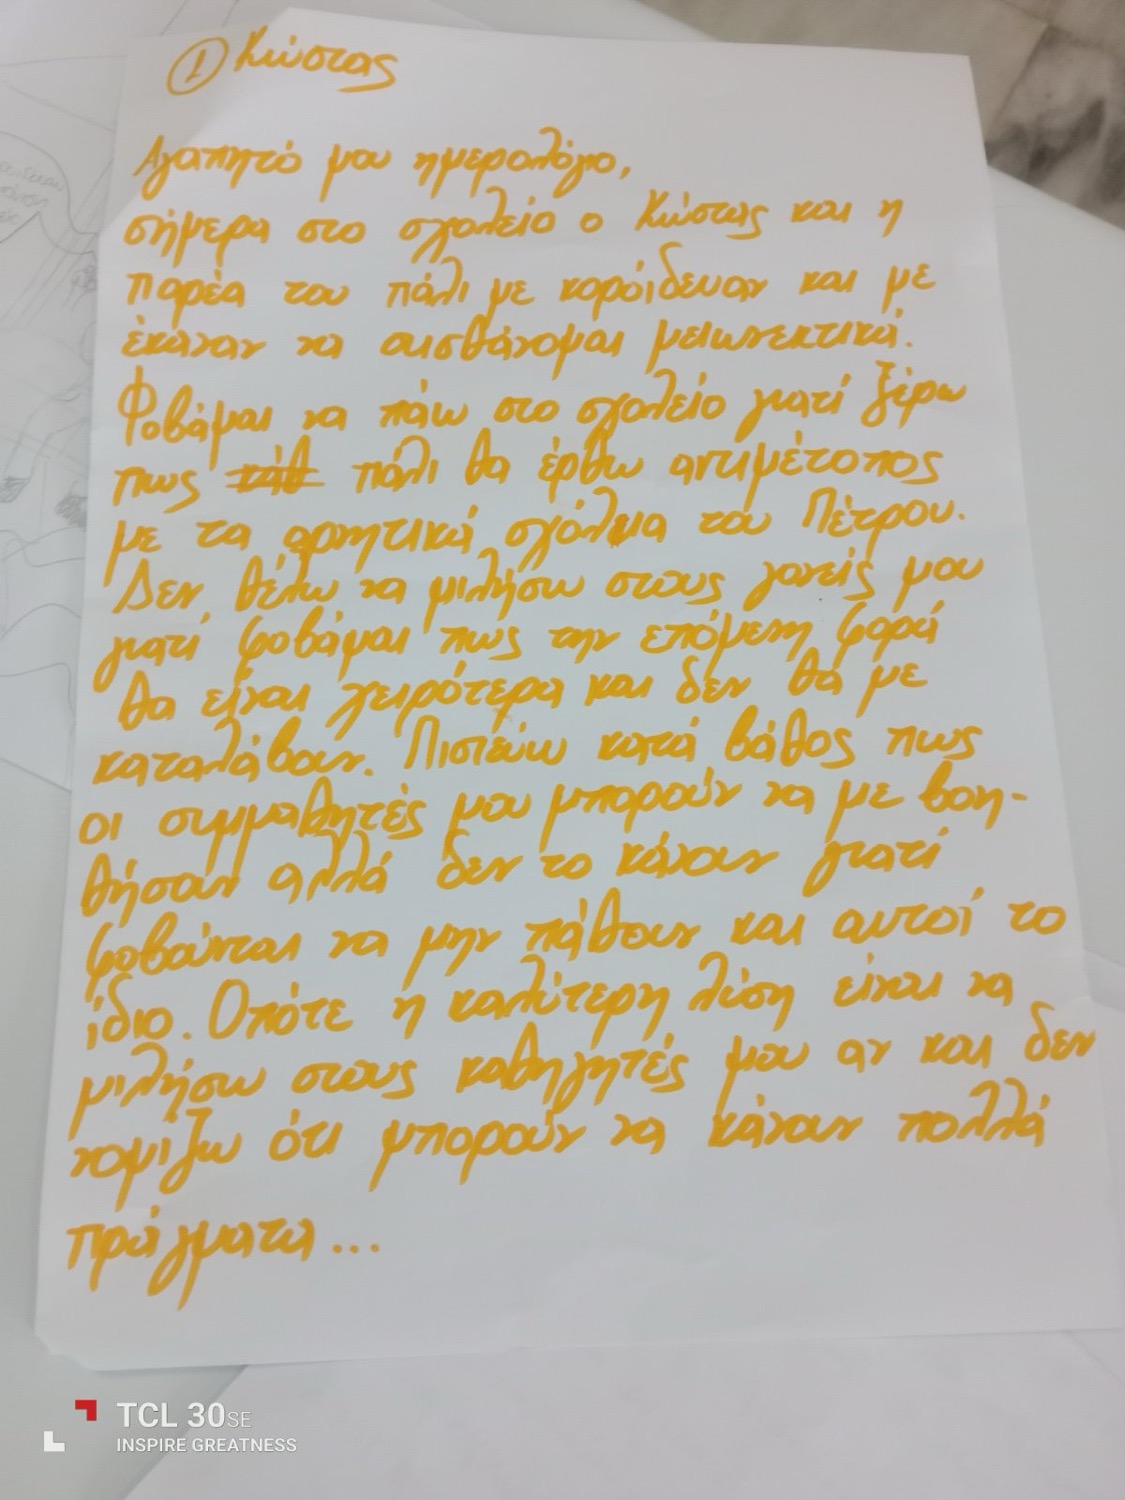 ① Κώστας
Αγαπητό μου ημερολόγιο,
σήμερα στο σχολείο ο Κώστας και η
παρέα του πάλι με κορόιδευαν και με
έκαναν να αισθάνομαι μειωνεκτικά.
Φοβάμαι να πάω στο σχολείο γιατί ξέρω
πως κάθ πάλι θα έρθω αντιμέτοπος
με τα αρνητικά σχόλια του Πέτρου.
Δεν θέλω να μιλήσω στους γονείς μου
γιατί φοβάμαι πως την επόμενη φορά
θα είναι χειρότερα και δεν θα με
καταλάβουν. Πιστεύω κατά βάθος πως
οι συμμαθητές μου μπορούν να με βοη-
θήσουν αλλά δεν το κάνουν γιατί
φοβούνται να μην πάθουν και αυτοί το
ίδιο. Οπότε η καλύτερη λύση είναι να
μιλήσω στους καθηγητές μου αν και δεν
νομίζω ότι μπορούν να κάνουν πολλά
πράγματα...
TCL 30SE
INSPIRE GREATNESS